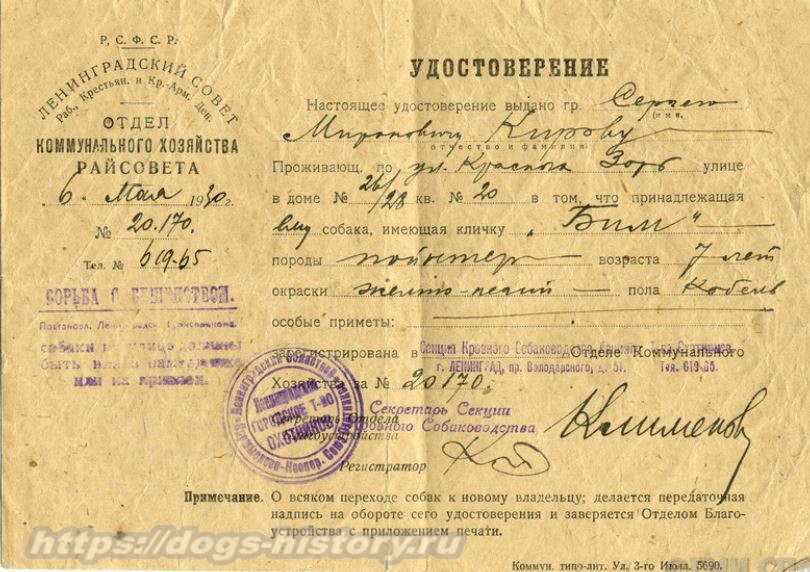 Р. С. Ф. С. Р.
ЛЕНИНГРАДСКИЙ СОВЕТ
Раб., Крестьян. и Кр.-Арм. Деп.
ОТДЕЛ
КОММУНАЛЬНОГО ХОЗЯЙСТВА
РАЙСОВЕТА
6 Мая 1930 г.
№ 20.170.
Тел. № 619-65
БОРЬБА С БЕШЕНСТВОМ.
Постановл.
собаки на улице должны
быть или в наморднике
или на привязи.
УДОСТОВЕРЕНИЕ
Настоящее удостоверение выдано гр. Сергею
(имя,
Мироновичу Кирову
отчество и фамилия)
Проживающ. по ул. Красных Зорь улице
в доме № 26/28 кв. № 20 в том, что принадлежащая
ему собака, имеющая кличку „Бим“
породы пойнтер возраста 7 лет
окраски желто-пегий пола Кобель
особые приметы:
зарегистрирована в Секция Кровного Собаководства Т-ва Охотников Отделе Коммунального
г. ЛЕНИНГРАД, пр. Володарского, д. 51. Тел. 619-65.
Хозяйства за № 20170.
Секретарь Секции
Кровного Собаководства
Секретарь Отдела
Благоустройства
Клименов
Регистратор
ГОРОДСКОЕ Т-ВО
ОХОТНИКОВ
Примечание. О всяком переходе собак к новому владельцу; делается передаточная
надпись на обороте сего удостоверения и заверяется Отделом Благо-
устройства с приложением печати.
https://dogs-history.ru
Коммун. типо-лит. Ул. 3-го Июля. 5690.